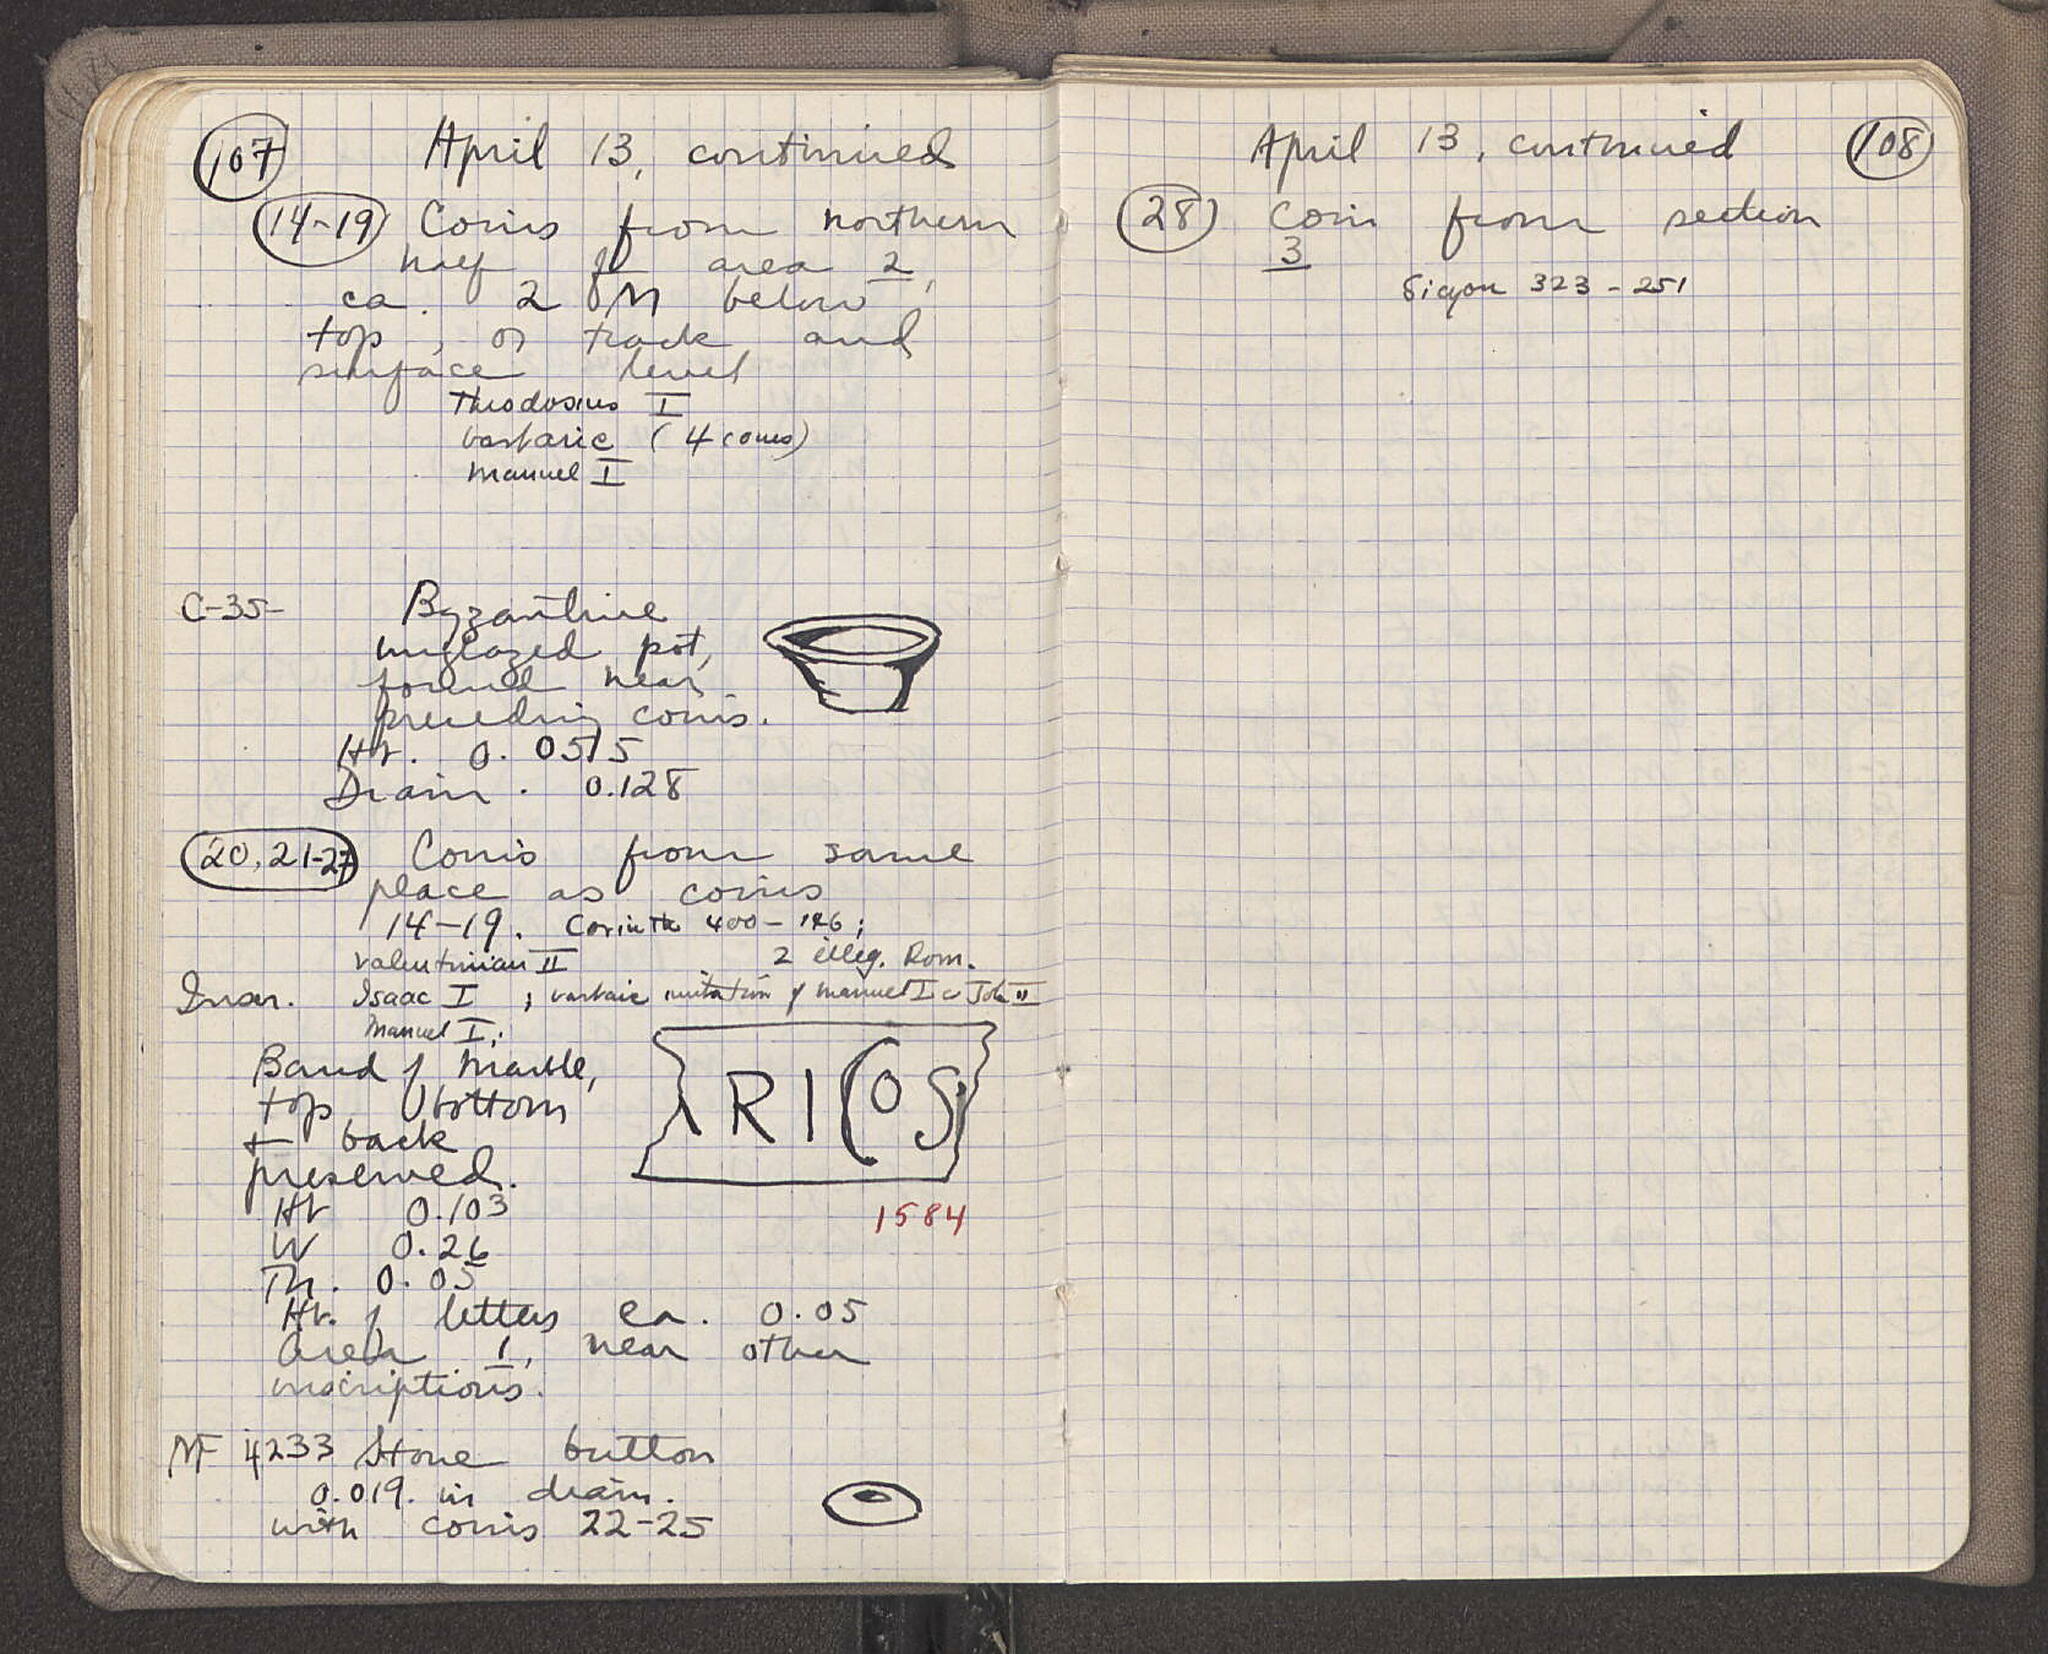 107
April 13, continued
14-19 Coins from northern
half of area 2,
ca. 2 M below
top, or track and
surface level
Theodosius I
barbaric (4 coins)
Manuel I
C-35- Byzantine
unglazed pot,
found near
preceding coins.
Ht. 0.0515
Diam. 0.128
20, 21-27 Coins from same
place as coins
14-19. Corinth 400-146;
Valentinian II 2 illeg. Rom.
Inscr. Isaac I ; barbaric imitation of Manuel I or John II
Manuel I;
Band of marble,
top, bottom
+ back
preserved.
RICOS
1584
Ht 0.103
W 0.26
Th. 0.05
Ht. of letters ca. 0.05
Area 1, near other
inscriptions.
MF 4233 Stone button
0.019. in diam.
with coins 22-25
April 13, continued
108
28 Coin from section
3
Sicyon 323-251